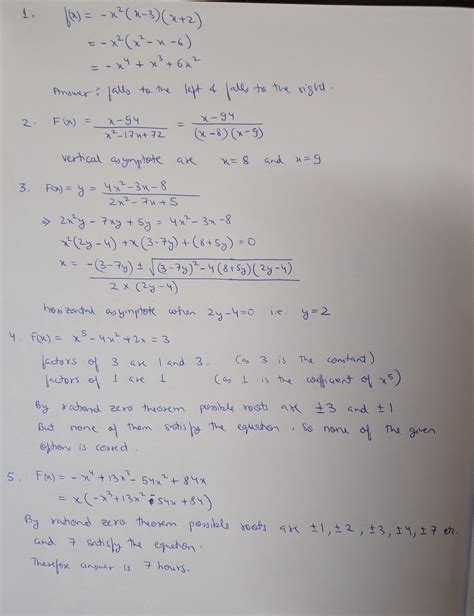 1. f(x) = -x²(x-3)(x+2)
= -x²(x²-x-6)
= -x⁴ + x³ + 6x²
Answer: falls to the left & falls to the right.
2. F(x) = x-94 / x²-17x+72 = x-94 / (x-8)(x-9)
vertical asymptote are x=8 and x=9
3. F(x) = y = 4x²-3x-8 / 2x²-7x+5
⇒ 2x²y - 7xy + 5y = 4x²-3x-8
x²(2y-4) + x(3-7y) + (8+5y) = 0
x = -(3-7y) ± √(3-7y)²-4(8+5y)(2y-4) / 2×(2y-4)
horizontal asymptote when 2y-4=0 i.e. y=2
4. F(x) = x⁵-4x²+2x=3
factors of 3 are 1 and 3. (as 3 is the constant)
factors of 1 are 1 (as 1 is the coefficient of x⁵)
By rational zero theorem possible roots are ±3 and ±1
But none of them satisfy the equation. So none of the given
option is correct.
5. F(x) = -x⁴+13x³-54x²+84x
= x(-x³+13x² 54x+84)
By rational zero theorem possible roots are ±1, ±2, ±3, ±4, ±7
and 7 satisfy the equation.
Therefore answer is 7 hours.